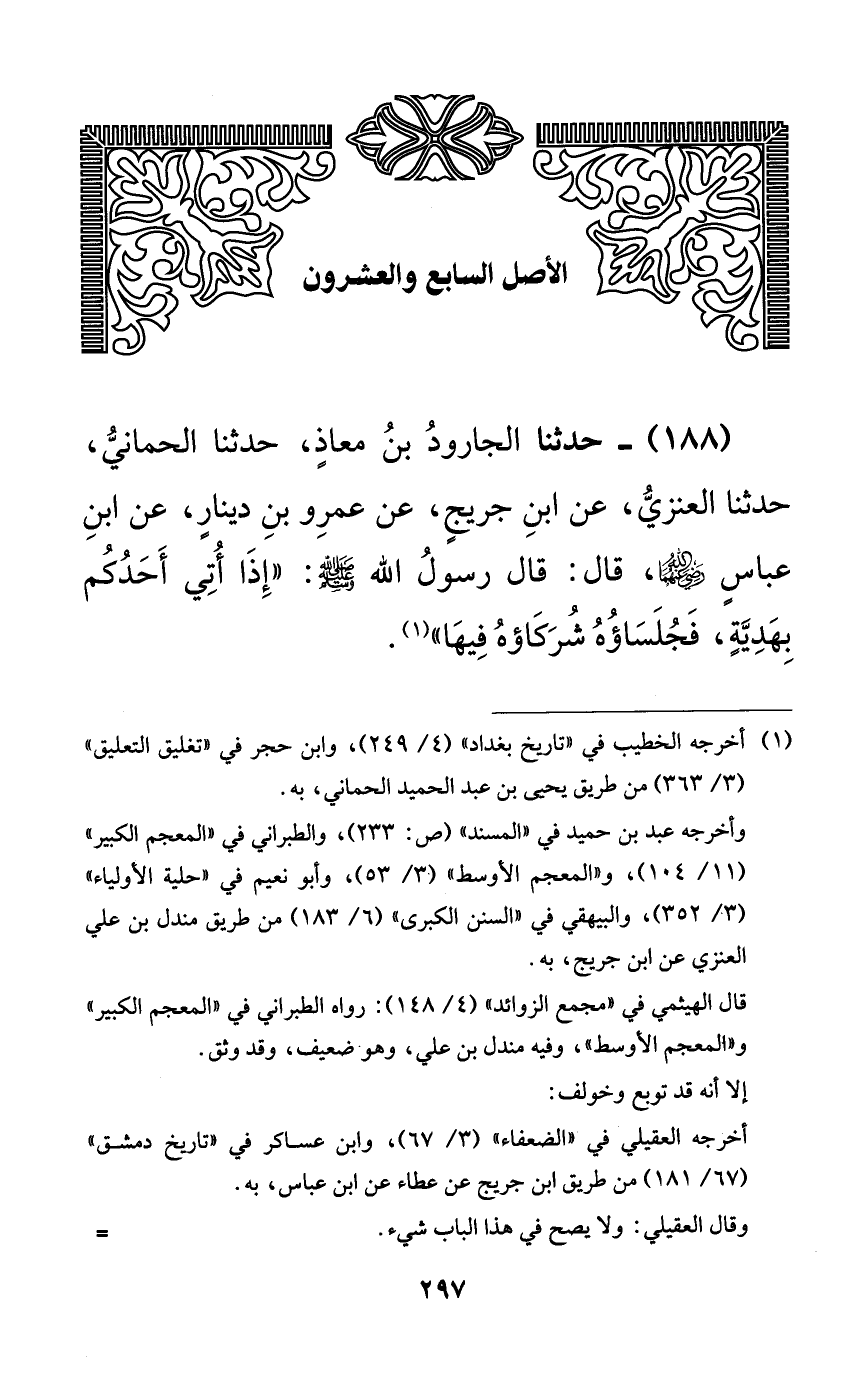 الأصل السابع والعشرون
(١٨٨) ـ حدثنا الجارودُ بنُ معاذٍ، حدثنا الحمانيُّ،
حدثنا العنزيُّ، عن ابنِ جريجٍ، عن عمرِو بنِ دينارٍ، عن ابنِ
عباسٍ رضي الله عنهما، قال: قال رسولُ الله ﷺ: «إِذَا أُتِي أَحَدُكُم
بِهَدِيَّةٍ، فَجُلَسَاؤُهُ شُرَكَاؤهُ فِيهَا»(١).
(١) أخرجه الخطيب في «تاريخ بغداد» (٤/ ٢٤٩)، وابن حجر في «تغليق التعليق»
(٣/ ٣٦٣) من طريق يحيى بن عبد الحميد الحماني، به.
وأخرجه عبد بن حميد في «المسند» (ص: ٢٣٣)، والطبراني في «المعجم الكبير»
(١١/ ١٠٤)، و«المعجم الأوسط» (٣/ ٥٣)، وأبو نعيم في «حلية الأولياء»
(٣/ ٣٥٢)، والبيهقي في «السنن الكبرى» (٦/ ١٨٣) من طريق مندل بن علي
العنزي عن ابن جريج، به.
قال الهيثمي في «مجمع الزوائد» (٤/ ١٤٨): رواه الطبراني في «المعجم الكبير»
و«المعجم الأوسط»، وفيه مندل بن علي، وهو ضعيف، وقد وثق.
إلا أنه قد توبع وخولف:
أخرجه العقيلي في «الضعفاء» (٣/ ٦٧)، وابن عساكر في «تاريخ دمشق»
(٦٧/ ١٨١) من طريق ابن جريج عن عطاء عن ابن عباس، به.
وقال العقيلي: ولا يصح في هذا الباب شيء. =
٢٩٧